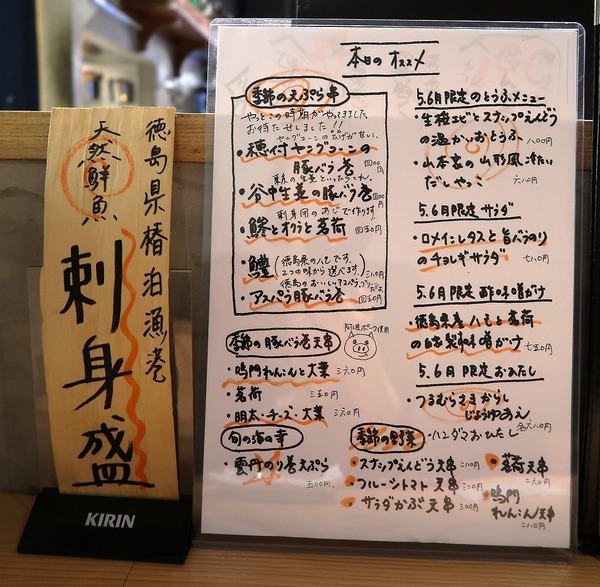 徳島県椿泊漁港
天然鮮魚
刺身盛
KIRIN
本日のオススメ
季節の天ぷら串
やっとこの時期がやってきました。
お待たせしました!!
ヤングコーンのひげが甘い。
・穂付ヤングコーンの
豚バラ巻
・谷中生姜の豚バラ巻
刺身用のあじで作ります。
・鯵とオクラと茗荷
・鱧
徳島県のハモです。
2つの味から選べます。
・アスパラ豚バラ巻
季節の豚バラ巻天串
阿波ポーク使用
・鳴門れんこんと大葉 360円
・茗荷 350円
・明太・チーズ・大葉 360円
旬の海の幸
・雲丹のり巻天ぷら
500円
5.6月限定のとうふメニュー
・生桜エビとスナップえんどう
の温かいおとうふ 800円
・山本家の山形風冷たい
だしやっこ 680円
5.6月限定 サラダ
・ロメインレタスと旨バラのり
のチョレギサラダ 780円
5.6月限定 酢味噌がけ
徳島県産ハモと茗荷
の自家製酢味噌がけ 750円
5.6月限定 おひたし
・つるむらさきからし
じょうゆあえ
・ハンダマおひたし
季節の野菜
・スナップえんどう天串 210円
・フルーツトマト天串 300円
・サラダかぶ天串 300円
・茗荷天串
260円
・鳴門
れんこん天串
210円